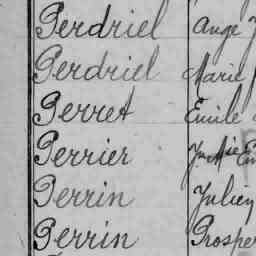 Perdriel Ange
Perdriel Marie
Perret Emile
Perrier
Perrin Julien
Perrin Prosper